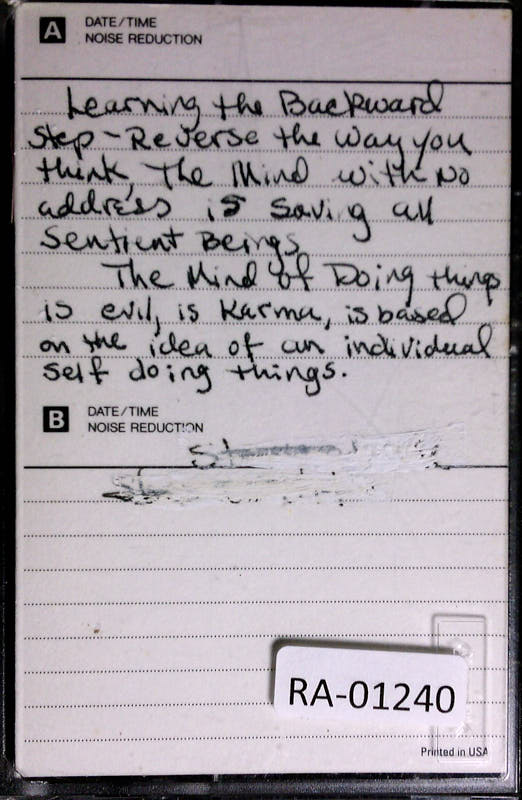 A DATE/TIME
NOISE REDUCTION
Learning the Backward
Step - Reverse the way you
think, The Mind with No
address is saving all
Sentient Beings
The Mind of Doing things
is evil, is Karma, is based
on the idea of an individual
self doing things.
B DATE/TIME
NOISE REDUCTION
RA-01240
Printed in USA